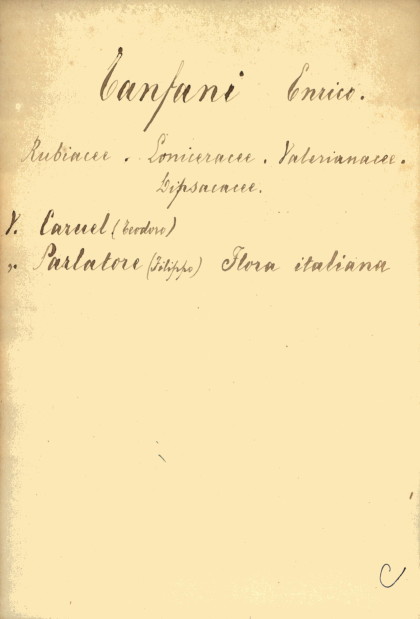 Tanfani Enrico.
Rubiacee. Loniceracee. Valerianacee.
Dipsacacee.
V. Caruel (Teodoro)
" Parlatore (Filippo) Flora italiana
C